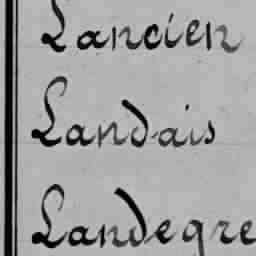 Lancien
Landais
Landegre